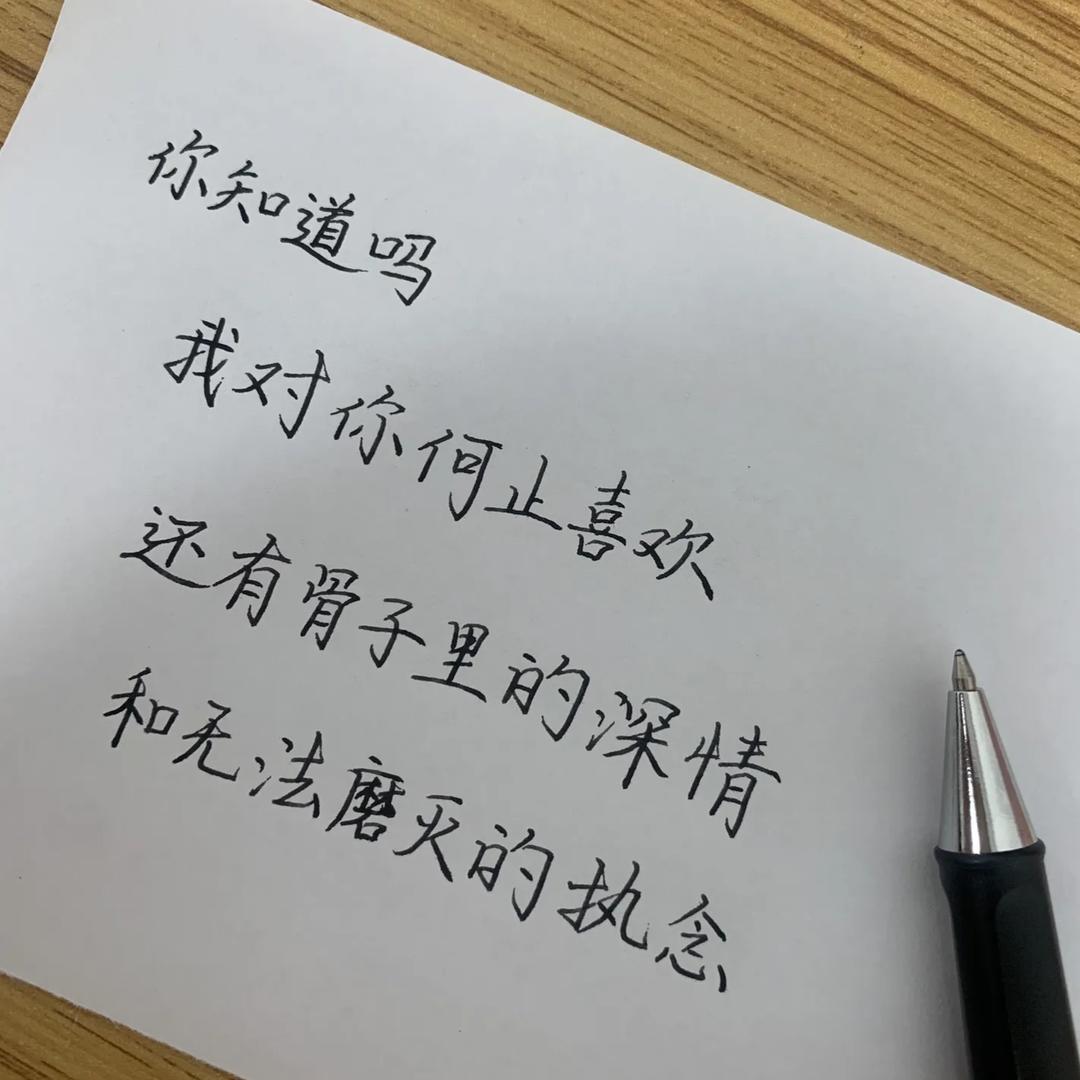 你知道吗
我对你何止喜欢
还有骨子里的深情
和无法磨灭的执念